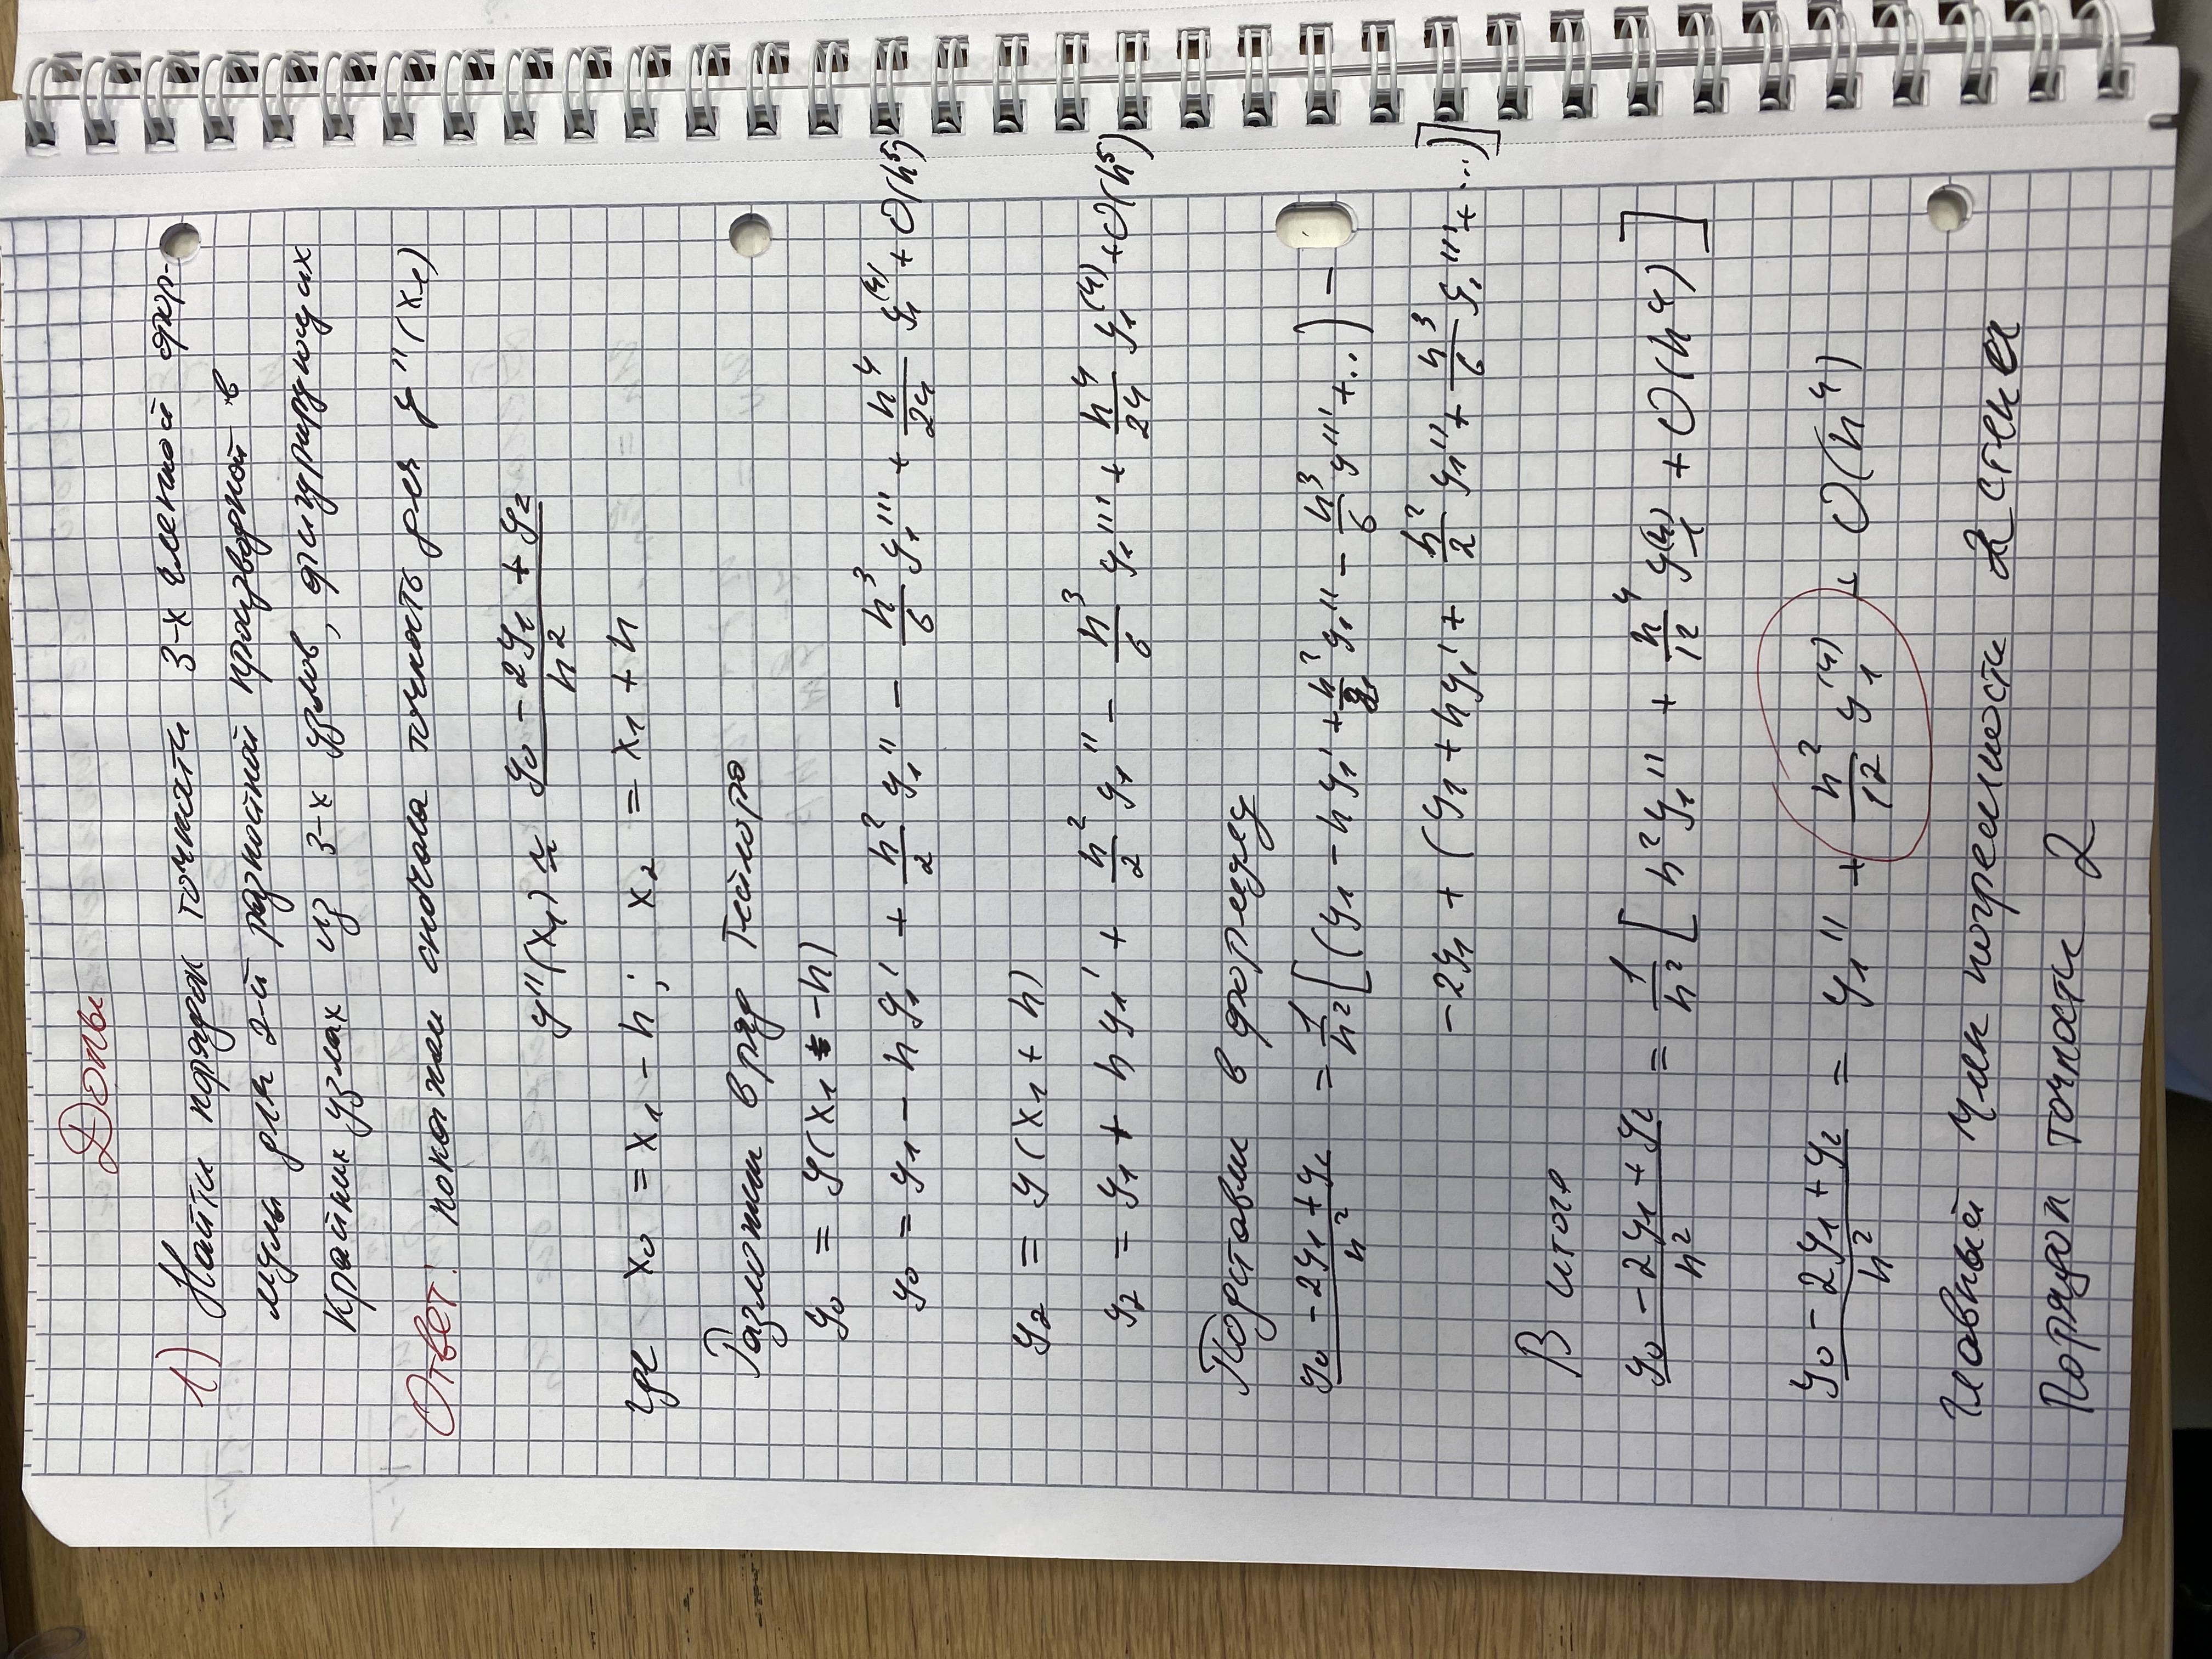 Допы
1) Найти порядок точности 3-х членной фор-
мулы для 2-й разностной производной в
крайних узлах из 3-х узлов, фигурирующих
Ответ: покажем сначала точность для y''(x₁)
y''(x₁) ≃ (y₀ - 2y₁ + y₂)/h²
где x₀ = x₁ - h; x₂ = x₁ + h
Разложим в ряд Тейлора
y₀ = y(x₁ - h)
y₀ = y₁ - hy₁' + h²/2 y₁'' - h³/6 y₁''' + h⁴/24 y₁⁽⁴⁾ + O(h⁵)
y₂ = y(x₁ + h)
y₂ = y₁ + hy₁' + h²/2 y₁'' - h³/6 y₁''' + h⁴/24 y₁⁽⁴⁾ + O(h⁵)
Подставим в формулу
(y₀ - 2y₁ + y₂)/h² = 1/h² [(y₁ - hy₁' + h²/2 y₁'' - h³/6 y''' + ..) -
- 2y₁ + (y₁ + hy₁' + h²/2 y₁'' + h³/6 y₁''' + ...)]
В итоге
(y₀ - 2y₁ + y₂)/h² = 1/h² [h²y₁'' + h⁴/12 y₁⁽⁴⁾ + O(h⁴)]
(y₀ - 2y₁ + y₂)/h² = y₁'' + h²/12 y₁⁽⁴⁾ + O(h⁴)
Главный член погрешности 2 степени
Порядок точности 2